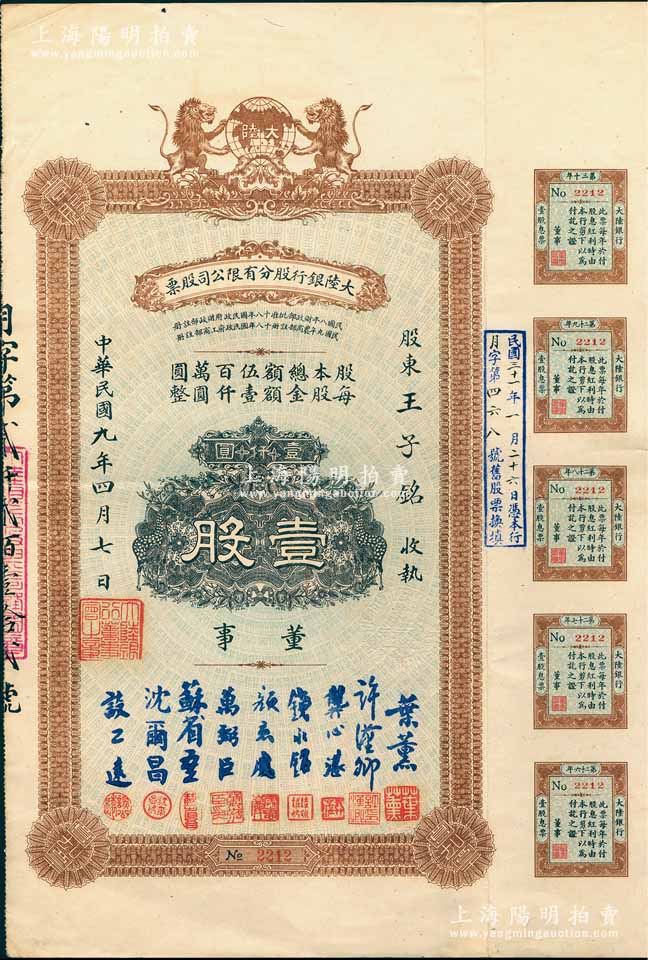 上海陽明拍賣
www.yangmingauction.com
大陸
大陸銀行股分有限公司股票
民國八年財政部批准十八年國民政府財政部註冊
民國九年農商部註冊十八年國民政府工商部註冊
股本總額伍百萬圓
每股金額壹仟圓整
股東王子銘收執
壹仟圓
上海陽明拍賣
www.yangmingauction.com
壹股
中華民國九年四月七日
大陸銀行董事會之章
董事
葉薰
許漢卿
龔心湛
錢永銘
顏惠慶
萬弼臣
蘇宥重
沈爾昌
談公遠
No 2212
月字第貳仟貳佰壹拾貳號
民國三十一年一月二十六日憑本行
月字第四六八號舊股票換填
第三十年
No 2212
大陸銀行
此票每年於付
股息紅利時由
本行剪下以為
付訖之證
董事
壹股息票
第二十九年
No 2212
大陸銀行
此票每年於付
股息紅利時由
本行剪下以為
付訖之證
董事
壹股息票
第二十八年
No 2212
大陸銀行
此票每年於付
股息紅利時由
本行剪下以為
付訖之證
董事
壹股息票
第二十七年
No 2212
大陸銀行
此票每年於付
股息紅利時由
本行剪下以為
付訖之證
董事
壹股息票
第二十六年
No 2212
大陸銀行
此票每年於付
股息紅利時由
本行剪下以為
付訖之證
董事
壹股息票
上海陽明拍賣
www.yangmingauction.com